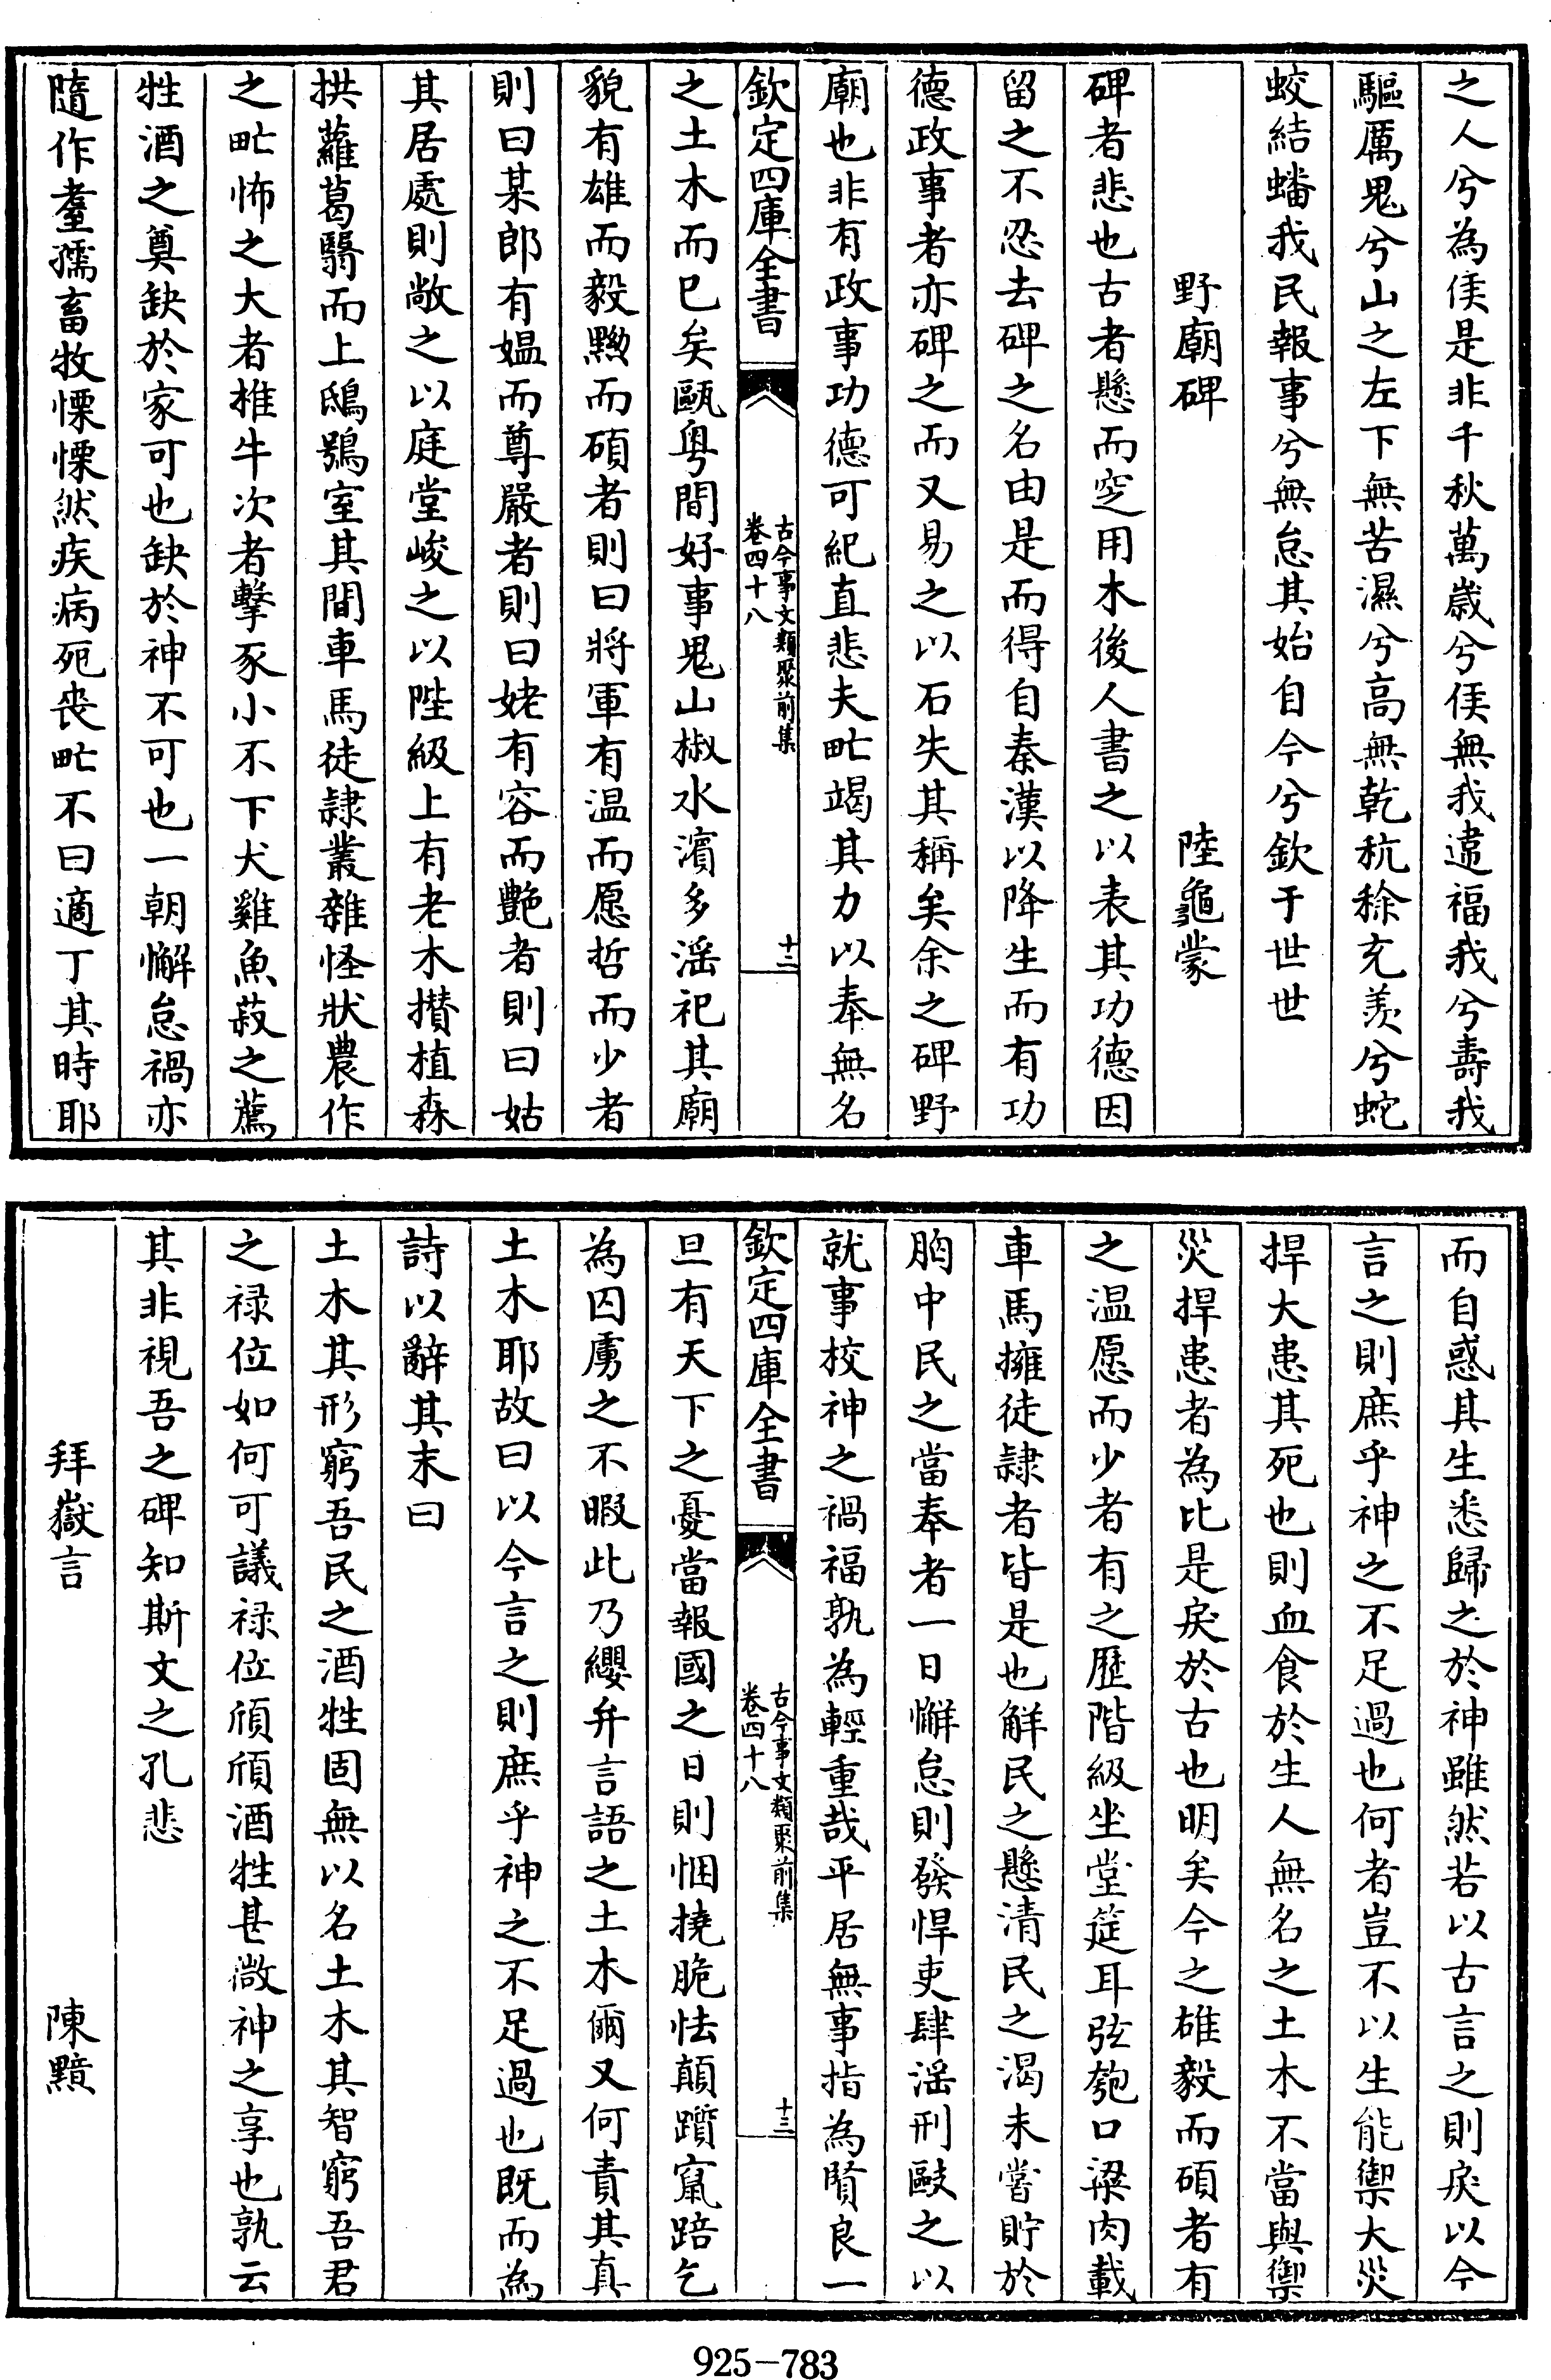 之人兮為侯是非千秋萬歲兮侯無我違福我兮壽我
驅厲鬼兮山之左下無苦濕兮高無乾秔稌充羨兮蛇
蛟結蟠我民報事兮無怠其始自今兮欽于世世
野廟碑 陸龜蒙
碑者悲也古者懸而窆用木後人書之以表其功德因
留之不忍去碑之名由是而得自秦漢以降生而有功
德政事者亦碑之而又易之以石失其稱矣余之碑野
廟也非有政事功德可紀直悲夫甿竭其力以奉無名
欽定四庫全書
古今事文類聚前集
卷四十八
十二
之土木而已矣甌粤間好事鬼山椒水濱多淫祀其廟
貌有雄而毅黝而碩者則曰將軍有温而愿哲而少者
則曰某郎有媪而尊嚴者則曰姥有容而艶者則曰姑
其居處則敞之以庭堂峻之以陛級上有老木攅植森
拱蘿葛翳而上鴟鴞室其間車馬徒隷叢雜怪狀農作
之甿怖之大者椎牛次者擊豕小不下犬雞魚菽之薦
牲酒之奠缺於家可也缺於神不可也一朝懈怠禍亦
隨作耋孺畜牧慄慄然疾病死喪甿不曰適丁其時耶
而自惑其生悉歸之於神雖然若以古言之則戾以今
言之則庶乎神之不足過也何者豈不以生能禦大災
捍大患其死也則血食於生人無名之土木不當與禦
災捍患者為比是戾於古也明矣今之雄毅而碩者有
之温愿而少者有之歷階級坐堂筵耳弦匏口粱肉載
車馬擁徒隷者皆是也解民之懸清民之渴未嘗貯於
胷中民之當奉者一日懈怠則發悍吏肆淫刑敺之以
就事校神之禍福孰為輕重哉平居無事指為賢良一
欽定四庫全書
古今事文類聚前集
卷四十八
十三
旦有天下之憂當報國之日則悃撓脆怯顛躓竄踣乞
為囚虜之不暇此乃纓弁言語之土木爾又何責其真
土木耶故曰以今言之則庶乎神之不足過也既而為
詩以辭其末曰
土木其形窮吾民之酒牲固無以名土木其智窮吾君
之禄位如何可議禄位頎頎酒牲甚微神之享也孰云
其非視吾之碑知斯文之孔悲
拜嶽言 陳黯
925-783